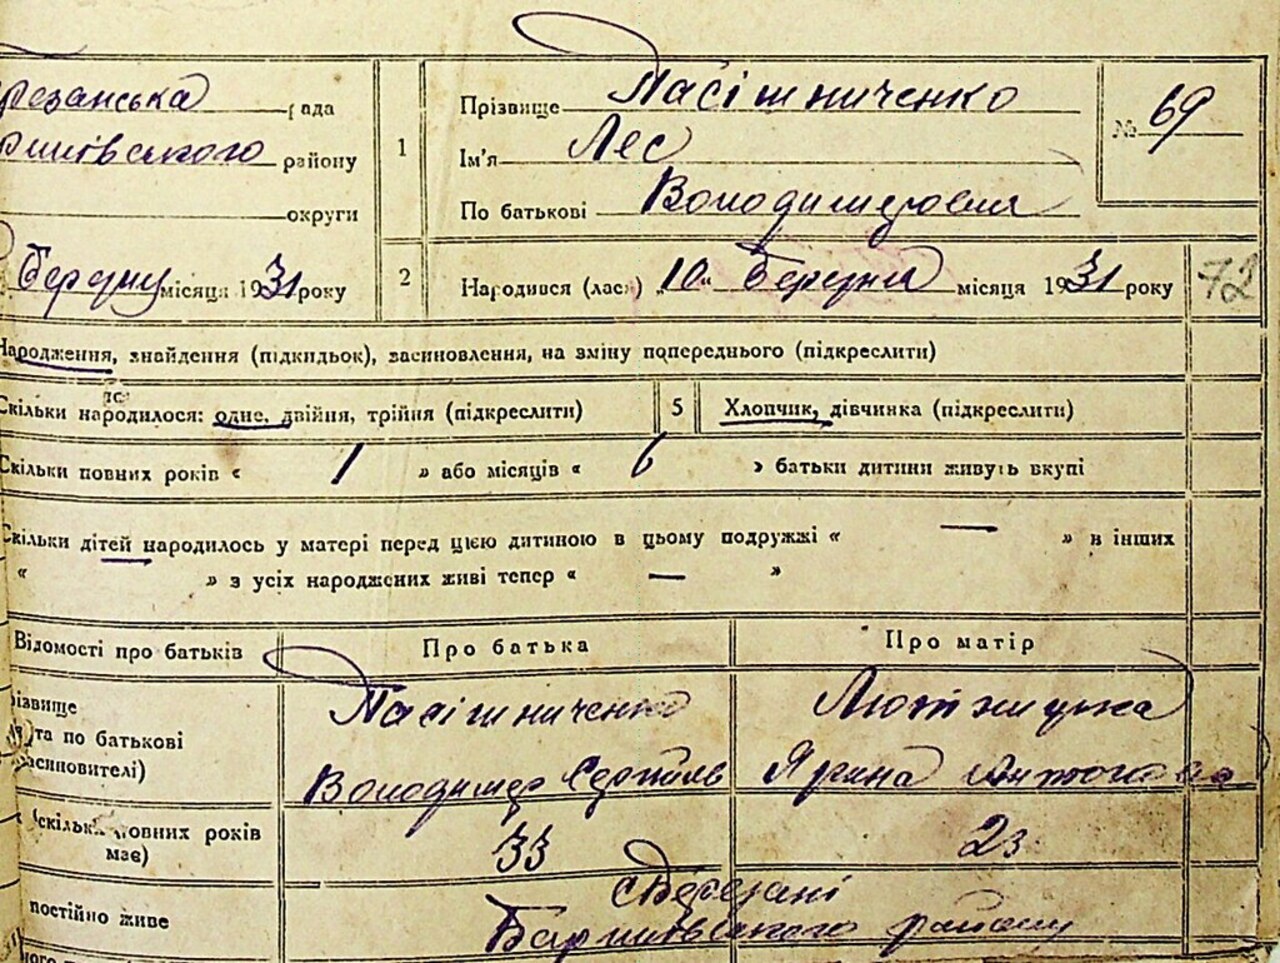 резанська рада
ришівського району
округи
Березня місяця 1931 року
1
Прізвище Пасішниченко
Ім'я Лес
По батькові Володимирович
№ 69
2
Народився (лась) „10" березня місяця 1931 року
72
Народження, знайдення (підкидьок), засиновлення, на зміну попереднього (підкреслити)
Скільки народилося: одне, двійня, трійня (підкреслити)
5
Хлопчик, дівчинка (підкреслити)
Скільки повних років « 1 » або місяців « 6 » батьки дитини живуть вкупі
Скільки дітей народилось у матері перед цією дитиною в цьому подружжі « — » в інших
« » з усіх народжених живі тепер « — »
Відомості про батьків
Про батька
Про матір
різвище
та по батькові
засиновителі)
Пасішниченко
Володимир
Ярина Антонова
(скільки повних років
має)
33
23
постійно живе
с Березані
Баришівського району